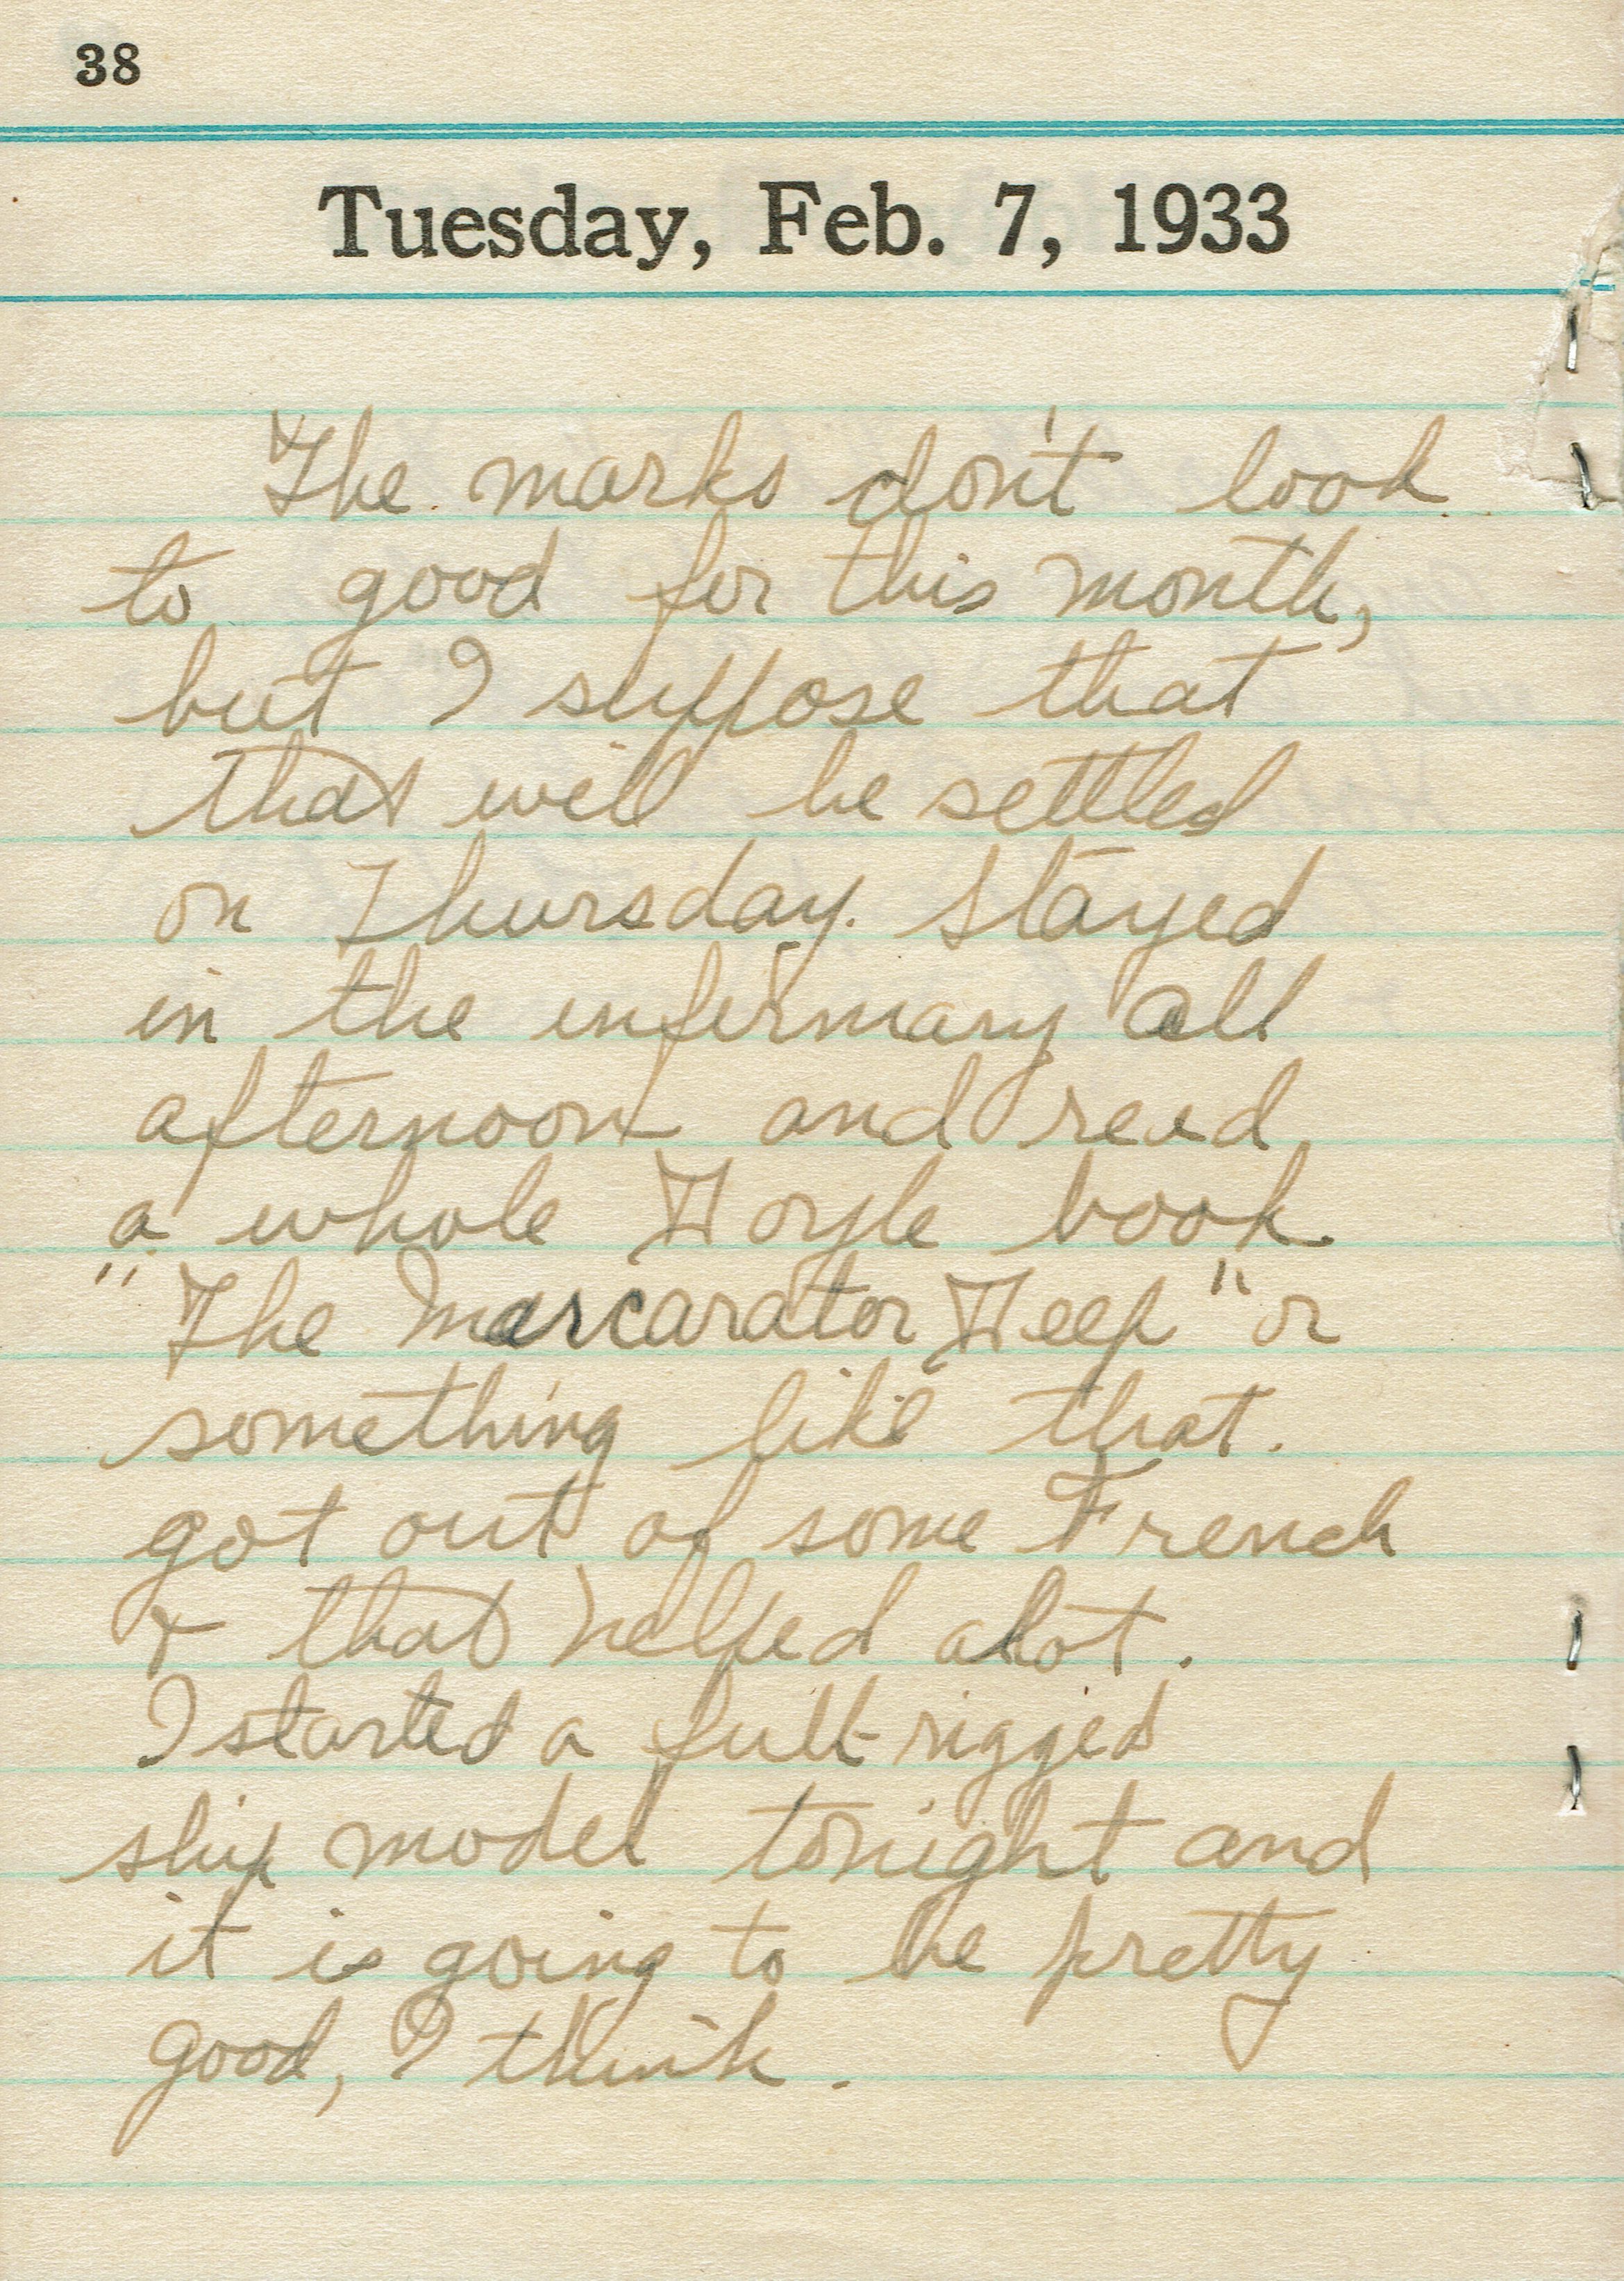 38
Tuesday, Feb. 7, 1933
The marks don't look
to good for this month,
but I suppose that
that will be settled
on Thursday. Stayed
in the infirmary all
afternoon and read
a whole Doyle book
"The Marcarator Deep" or
something like that.
got out of some French
& that helped alot.
I started a full-rigged
ship model tonight and
it is going to be pretty
good, I think.